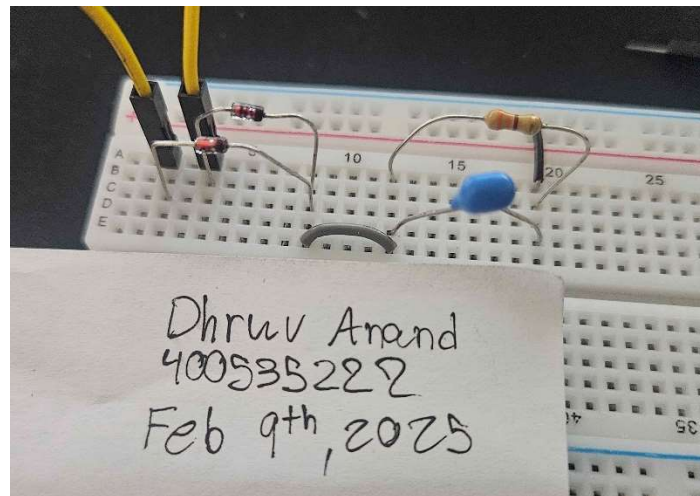 +
A
B
C
D
E
5
10
15
20
25
Dhruv Anand
400535222
Feb 9th, 2025
40
35